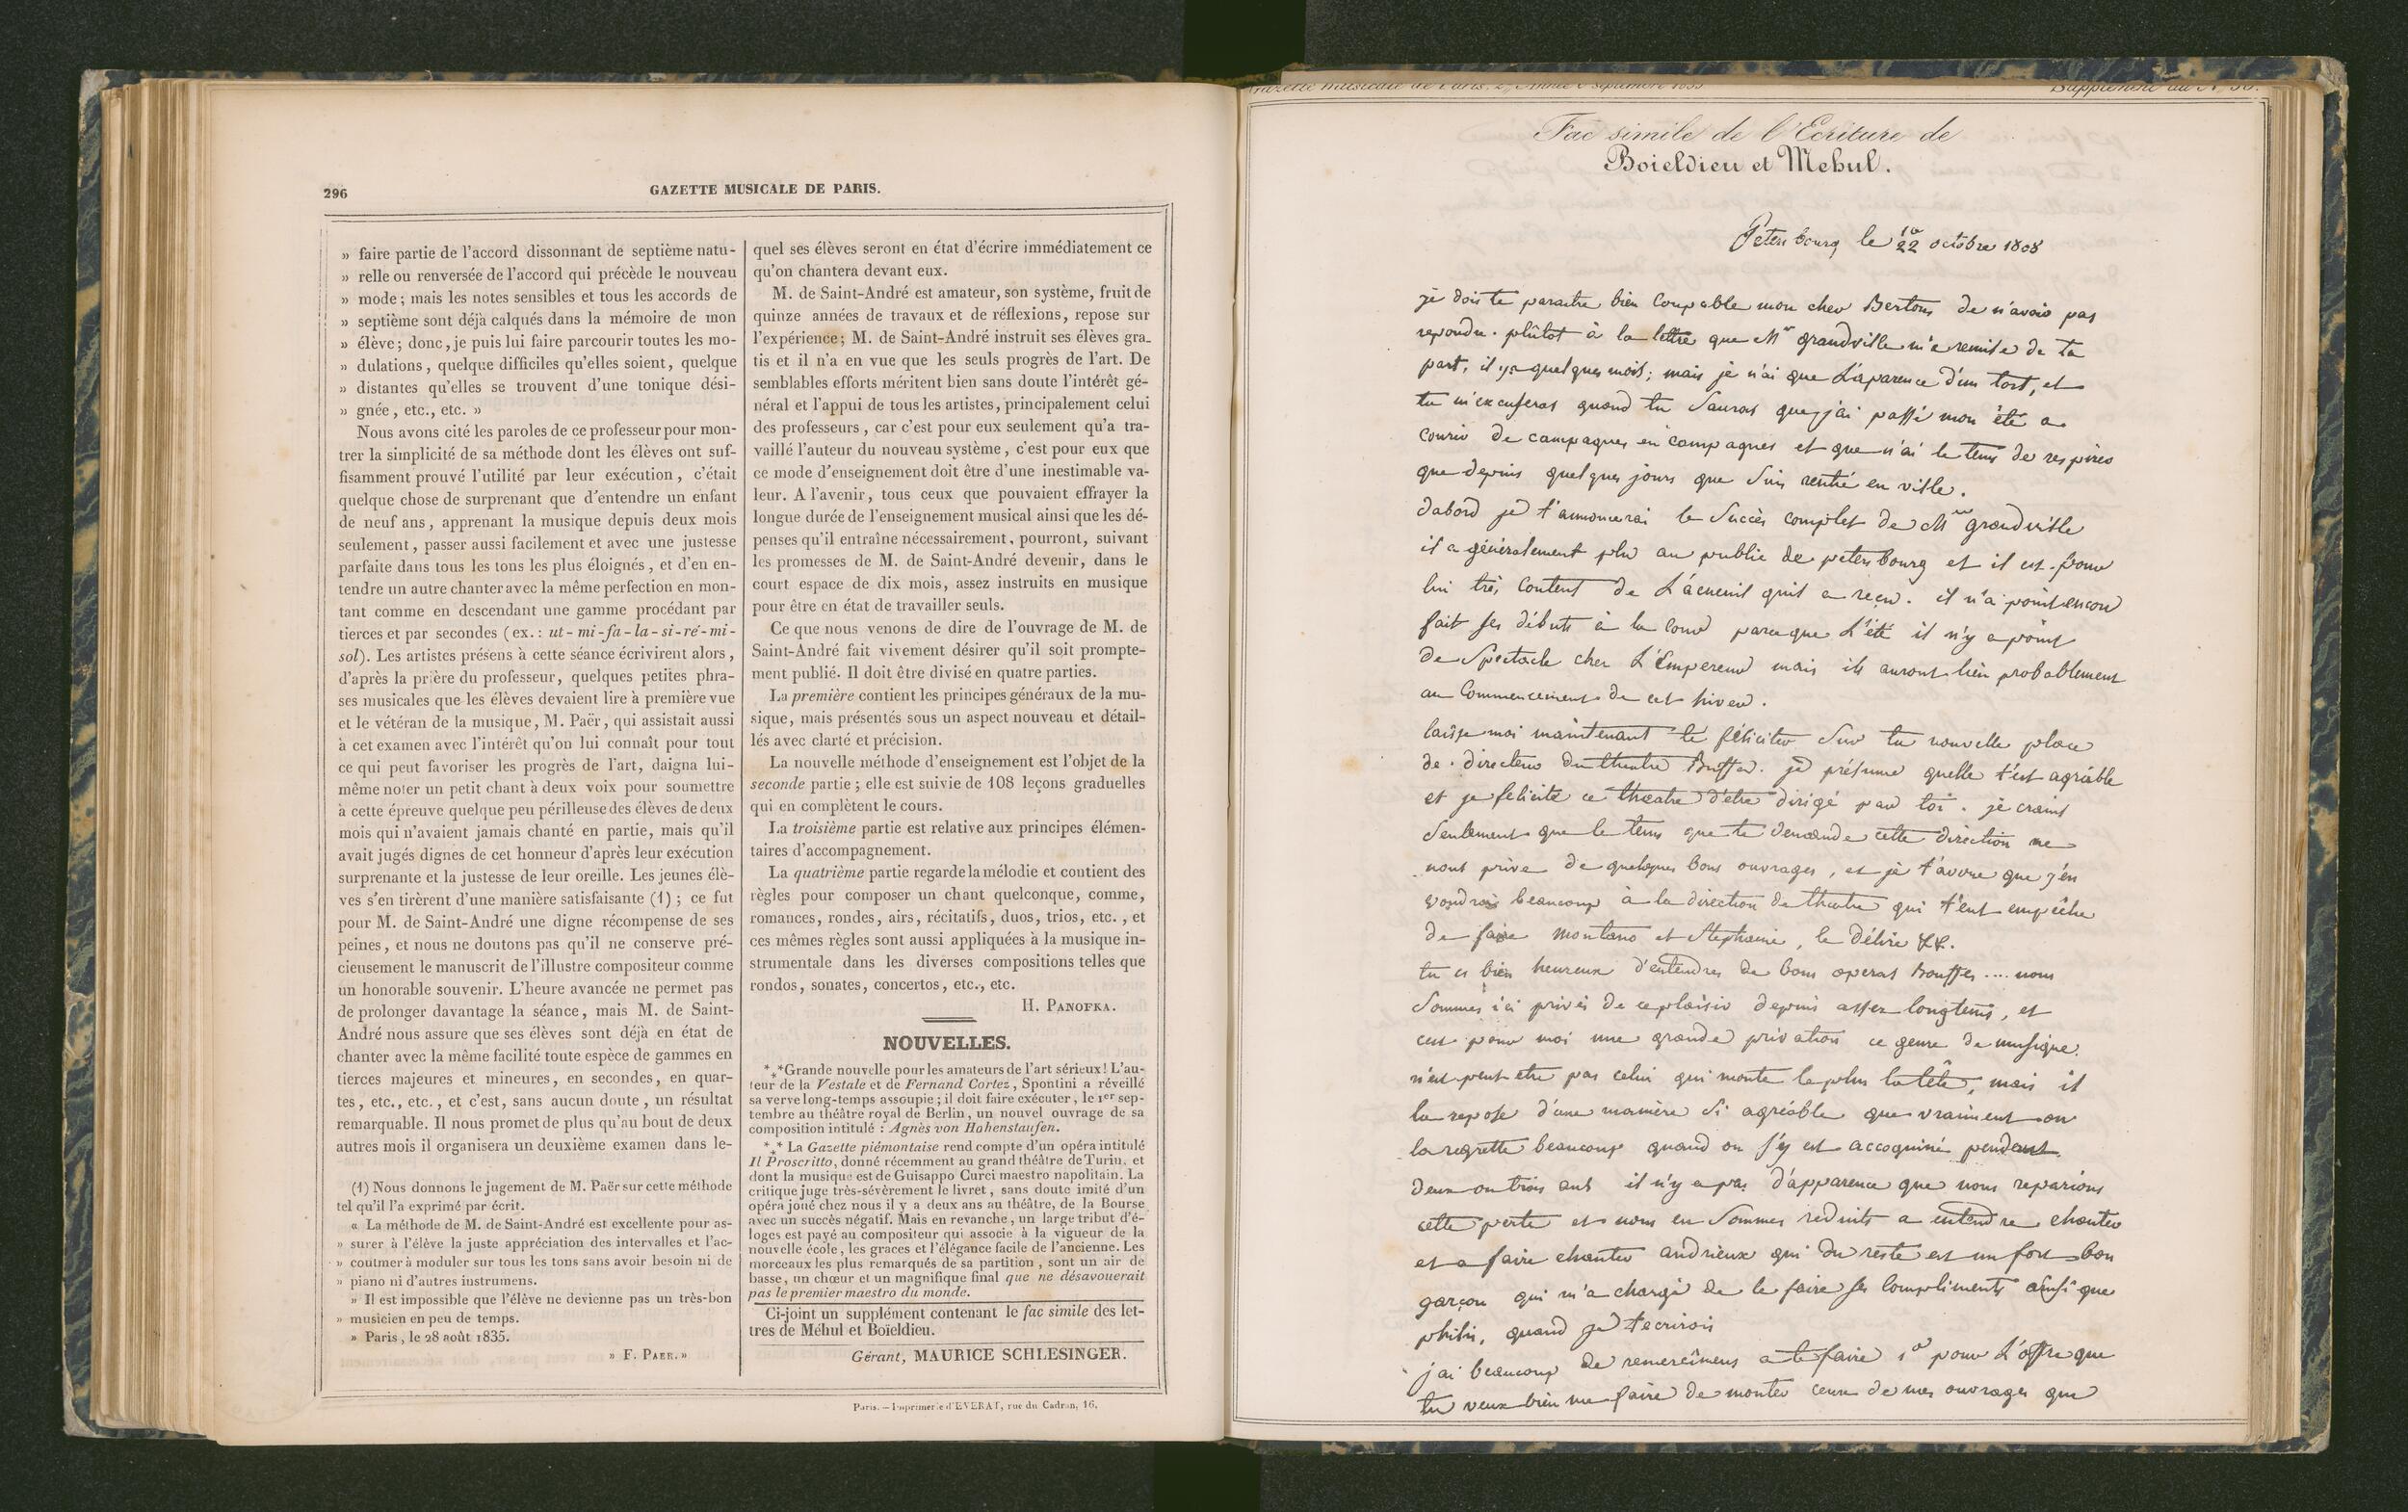 296
GAZETTE MUSICALE DE PARIS.
» faire partie de l'accord dissonnant de septième natu-
» relle ou renversée de l'accord qui précède le nouveau
» mode ; mais les notes sensibles et tous les accords de
» septième sont déjà calqués dans la mémoire de mon
» élève ; donc, je puis lui faire parcourir toutes les mo-
» dulations, quelque difficiles qu'elles soient, quelque
» distantes qu'elles se trouvent d'une tonique dési-
» gnée, etc., etc. »
Nous avons cité les paroles de ce professeur pour mon-
trer la simplicité de sa méthode dont les élèves ont suf-
fisamment prouvé l'utilité par leur exécution, c'était
quelque chose de surprenant que d'entendre un enfant
de neuf ans, apprenant la musique depuis deux mois
seulement, passer aussi facilement et avec une justesse
parfaite dans tous les tons les plus éloignés, et d'en en-
tendre un autre chanter avec la même perfection en mon-
tant comme en descendant une gamme procédant par
tierces et par secondes (ex. : ut-mi-fa-la-si-ré-mi-
sol). Les artistes présens à cette séance écrivirent alors,
d'après la prière du professeur, quelques petites phra-
ses musicales que les élèves devaient lire à première vue
et le vétéran de la musique, M. Paër, qui assistait aussi
à cet examen avec l'intérêt qu'on lui connaît pour tout
ce qui peut favoriser les progrès de l'art, daigna lui-
même noter un petit chant à deux voix pour soumettre
à cette épreuve quelque peu périlleuse des élèves de deux
mois qui n'avaient jamais chanté en partie, mais qu'il
avait jugés dignes de cet honneur d'après leur exécution
surprenante et la justesse de leur oreille. Les jeunes élè-
ves s'en tirèrent d'une manière satisfaisante (1) ; ce fut
pour M. de Saint-André une digne récompense de ses
peines, et nous ne doutons pas qu'il ne conserve pré-
cieusement le manuscrit de l'illustre compositeur comme
un honorable souvenir. L'heure avancée ne permet pas
de prolonger davantage la séance, mais M. de Saint-
André nous assure que ses élèves sont déjà en état de
chanter avec la même facilité toute espèce de gammes en
tierces majeures et mineures, en secondes, en quar-
tes, etc., etc., et c'est, sans aucun doute, un résultat
remarquable. Il nous promet de plus qu'au bout de deux
autres mois il organisera un deuxième examen dans le-
(1) Nous donnons le jugement de M. Paër sur cette méthode
tel qu'il l'a exprimé par écrit.
« La méthode de M. de Saint-André est excellente pour as-
» surer à l'élève la juste appréciation des intervalles et l'ac-
» coutmer à moduler sur tous les tons sans avoir besoin ni de
» piano ni d'autres instrumens.
» Il est impossible que l'élève ne devienne pas un très-bon
» musicien en peu de temps.
» Paris, le 28 août 1835.
» F. PAER. »
quel ses élèves seront en état d'écrire immédiatement ce
qu'on chantera devant eux.
M. de Saint-André est amateur, son système, fruit de
quinze années de travaux et de réflexions, repose sur
l'expérience ; M. de Saint-André instruit ses élèves gra-
tis et il n'a en vue que les seuls progrès de l'art. De
semblables efforts méritent bien sans doute l'intérêt gé-
néral et l'appui de tous les artistes, principalement celui
des professeurs, car c'est pour eux seulement qu'a tra-
vaillé l'auteur du nouveau système, c'est pour eux que
ce mode d'enseignement doit être d'une inestimable va-
leur. A l'avenir, tous ceux que pouvaient effrayer la
longue durée de l'enseignement musical ainsi que les dé-
penses qu'il entraîne nécessairement, pourront, suivant
les promesses de M. de Saint-André devenir, dans le
court espace de dix mois, assez instruits en musique
pour être en état de travailler seuls.
Ce que nous venons de dire de l'ouvrage de M. de
Saint-André fait vivement désirer qu'il soit prompte-
ment publié. Il doit être divisé en quatre parties.
La première contient les principes généraux de la mu-
sique, mais présentés sous un aspect nouveau et détail-
lés avec clarté et précision.
La nouvelle méthode d'enseignement est l'objet de la
seconde partie ; elle est suivie de 108 leçons graduelles
qui en complètent le cours.
La troisième partie est relative aux principes élémen-
taires d'accompagnement.
La quatrième partie regarde la mélodie et contient des
règles pour composer un chant quelconque, comme,
romances, rondes, airs, récitatifs, duos, trios, etc., et
ces mêmes règles sont aussi appliquées à la musique in-
strumentale dans les diverses compositions telles que
rondos, sonates, concertos, etc., etc.
H. PANOFKA.
NOUVELLES.
*** Grande nouvelle pour les amateurs de l'art sérieux ! L'au-
teur de la Vestale et de Fernand Cortez, Spontini a réveillé
sa verve long-temps assoupie ; il doit faire exécuter, le 1er sep-
tembre au théâtre royal de Berlin, un nouvel ouvrage de sa
composition intitulé : Agnès von Hohenstaufen.
*** La Gazette piémontaise rend compte d'un opéra intitulé
Il Proscritto, donné récemment au grand théâtre de Turin, et
dont la musique est de Guisappo Curci maestro napolitain. La
critique juge très-sévèrement le livret, sans doute imité d'un
opéra joué chez nous il y a deux ans au théâtre, de la Bourse
avec un succès négatif. Mais en revanche, un large tribut d'é-
loges est payé au compositeur qui associe à la vigueur de la
nouvelle école, les graces et l'élégance facile de l'ancienne. Les
morceaux les plus remarqués de sa partition, sont un air de
basse, un chœur et un magnifique final que ne désavouerait
pas le premier maestro du monde.
Ci-joint un supplément contenant le fac simile des let-
tres de Méhul et Boïeldieu.
Gérant, MAURICE SCHLESINGER.
Paris. — Imprimerie d'EVERAT, rue du Cadran, 16.
Gazette musicale de Paris. 2e Année 6 septembre 1835
Supplément au N° 36.
Fac simile de l'Ecriture de
Boieldieu et Mehul.
Petersbourg le 10/22 octobre 1808
je dois te paraitre bien Coupable mon cher Berton de n'avoir pas
repondu plûtot à la lettre que Mr grandville m'a remise de ta
part, il y a quelques mois ; mais je n'ai que L'aparence d'un tort, et
tu m'excuseras quand tu Sauras que j'ai passé mon été a
courir de campagnes en campagnes et que n'ai le tems de respirer
que depuis quelques jours que Suis rentré en ville.
dabord je t'annoncerai le Succès complet de Mr grandville
il a généralement plu au public de petersbourg et il est pour
lui très content de L'acueuil quil a reçu. il n'a point encore
fait ses débuts à la Cour parceque L'été il n'y a point
de Spectacle chez L'Empereur mais ils auront lieu probablement
au Commencement de cet hiver.
laisse moi maintenant te féliciter Sur ta nouvelle place
de directeur du theatre Buffa. je présume quelle t'est agréable
et je felicite ce theatre d'être dirigé par toi. je crains
Seulement que le tems que te demande cette direction ne
nous prive de quelques bons ouvrages, et je t'avoue que j'en
voudrois beaucoup à la direction de theatre qui t'eut empêché
de faire montano et Stephanie, le délire &&.
tu es bien heureux d'entendre de bons operas Bouffes .... nous
Sommes ici privés de ce plaisir depuis assez longtems, et
cest pour moi une grande privation ce genre de musique.
n'est peut etre pas celui qui monte le plus la tête, mais il
la repose d'une manière Si agréable que vraiment on
la regrette beaucoup quand on s'y est accoquiné pendant
deux ou trois ans il n'y a pas d'apparence que nous reparions
cette perte et nous en Sommes réduits a entendre chanter
et a faire chanter andrieux qui du reste est un fort bon
garçon qui m'a chargé de te faire ses Compliments ainsi que
philis, quand je t'ecrirois
j'ai beaucoup de remercîmens a te faire 1o pour L'offre que
tu veux bien me faire de monter ceux de mes ouvrages que